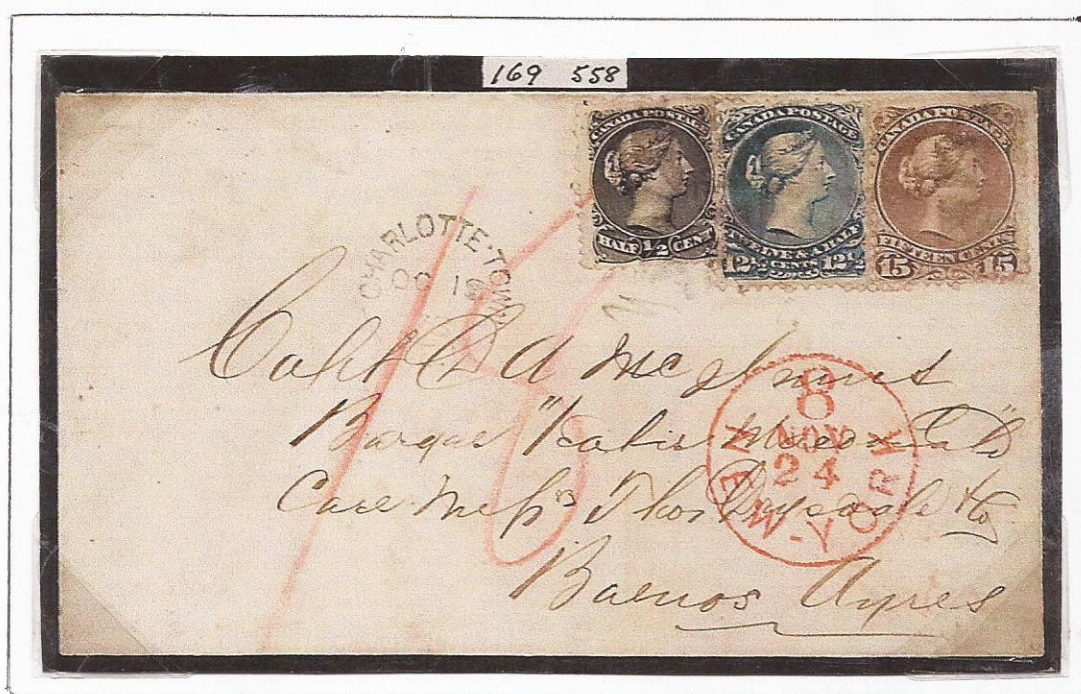 169 558
CANADA POSTAGE
HALF 1/2 CENT
CANADA POSTAGE
TWELVE & A HALF
12½ CENTS 12½
CANADA POSTAGE
FIFTEEN CENTS
15 15
CHARLOTTE-TOWN
OC 18
16
Capt A McInnis
Barque "Katie
Care Mess Thos Drysdale & Co
Buenos Ayres
NEW-YORK
8
NOV
24